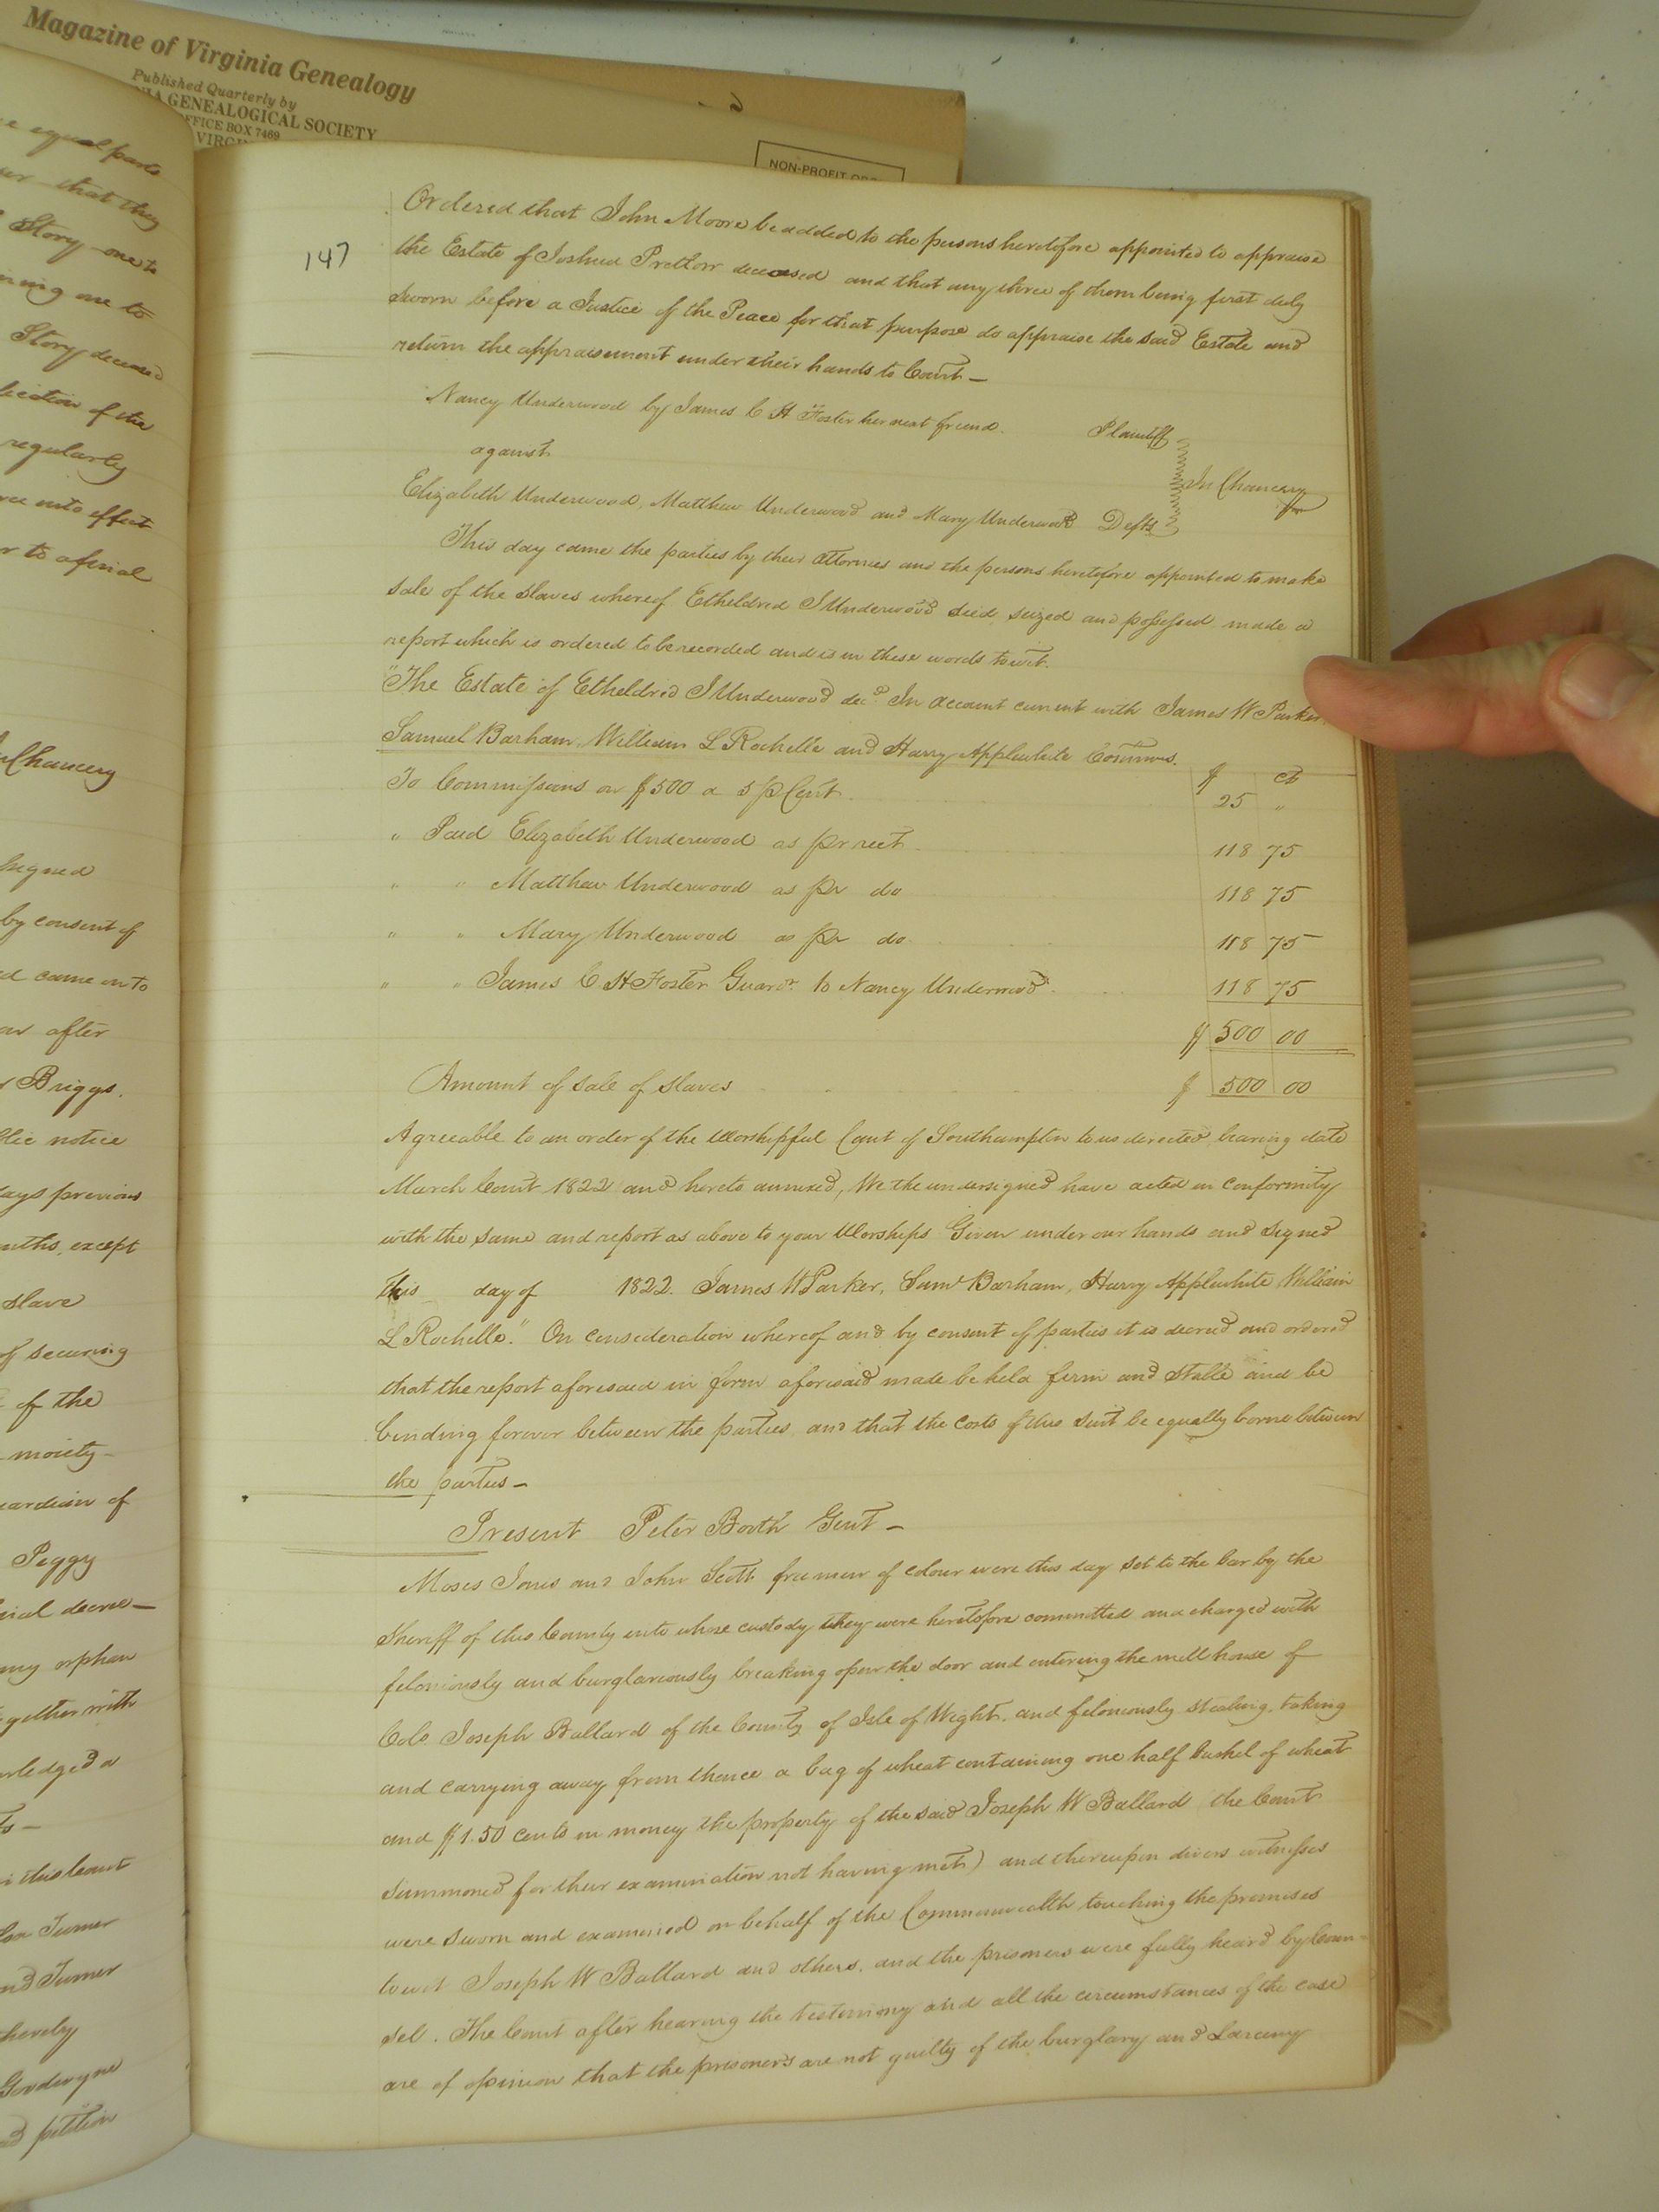 Magazine of Virginia Genealogy
Published Quarterly by
GENEALOGICAL SOCIETY
OFFICE BOX 7469
NON-PROFIT
equal parts
that they
Story one to
one to
Story deceased
of the
regularly
into effect
to a final
Chancery
signed
by consent of
came on to
after
Briggs.
notice
days previous
months, except
slave
of securing
of the
moiety
Guardian of
Peggy
decree
orphan
together with
this Court
Turner
Turner
hereby
petition
147
Ordered that John Moore be added to the persons heretofore appointed to appraise
the Estate of Joshua Pretlow deceased and that any three of them being first duly
sworn before a Justice of the Peace for that purpose do appraise the said Estate and
return the appraisement under their hands to Court —
Nancy Underwood by James C H Foster her next friend. Plaintiff
against
In Chancery
Elizabeth Underwood, Matthew Underwood and Mary Underwood Defts
This day came the parties by their attornies and the persons heretofore appointed to make
sale of the slaves whereof Etheldred J Underwood died seized and possessed made a
report which is ordered to be recorded and is in these words towit.
"The Estate of Etheldred J Underwood decd. In account current with James W Parker
Samuel Barham, William L Rochelle and Harry Applewhite Commrs.
$ cts
To Commissions on $500 a 5 p Cent 25 "
" Paid Elizabeth Underwood as pr rect 118 75
" " Matthew Underwood as pr do 118 75
" " Mary Underwood as pr do 118 75
" " James C H Foster Guardn. to Nancy Underwood 118 75
$ 500 00
Amount of sale of slaves $ 500 00
Agreeable to an order of the Worshipful Court of Southampton to us directed bearing date
March Court 1822 and hereto annexed, We the undersigned have acted in conformity
with the same and report as above to your Worships Given under our hands and signed
this day of 1822. James W Parker, Saml Barham, Harry Applewhite William
L Rochelle." On consideration whereof and by consent of parties it is decreed and ordered
that the report aforesaid in form aforesaid made be held firm and stable and be
binding forever between the parties and that the costs of this suit be equally borne between
the parties —
Present Peter Booth Gent —
Moses Jones and John Scott free men of colour were this day set to the bar by the
Sheriff of this County into whose custody they were heretofore committed and charged with
feloniously and burglariously breaking open the door and entering the mill house of
Colo. Joseph Ballard of the County of Isle of Wight, and feloniously stealing, taking
and carrying away from thence a bag of wheat containing one half bushel of wheat
and $1.50 cents in money the property of the said Joseph W Ballard the Court
summoned for their examination not having met) and thereupon divers witnesses
were sworn and examined on behalf of the Commonwealth touching the premises
towit Joseph W Ballard and others, and the prisoners were fully heard by Coun-
sel. The Court after hearing the testimony and all the circumstances of the case
are of opinion that the prisoners are not guilty of the burglary and Larceny